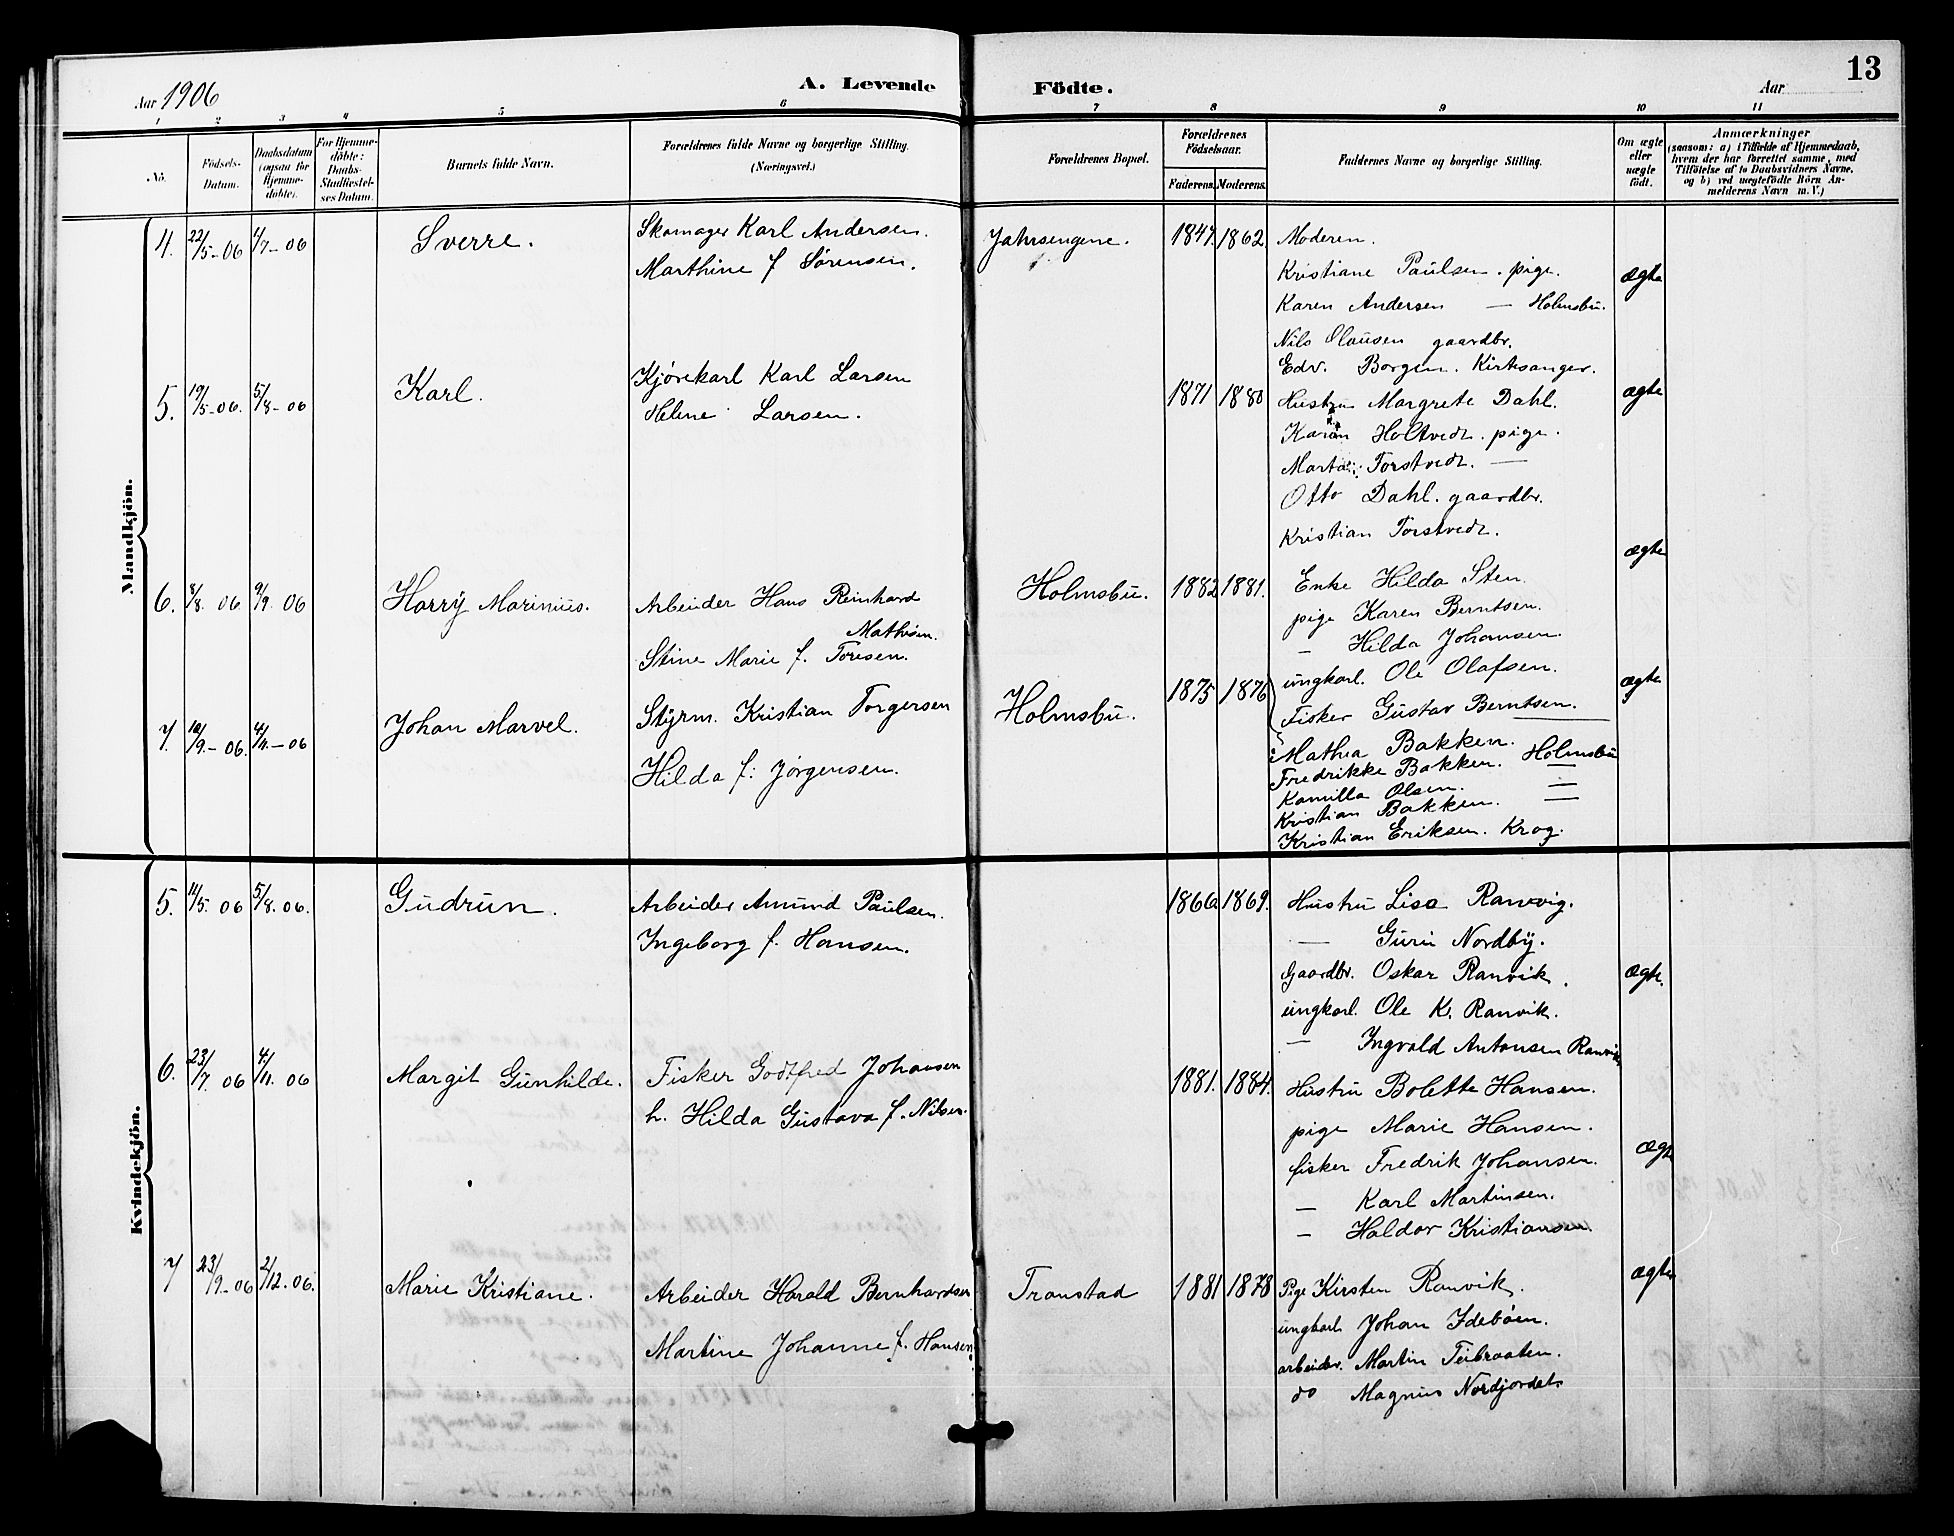 Aar 1906
A. Levende Födte.
Aar
13
1 2 3 4 5 6 7 8 9 10 11
No.
Födsels-Datum.
Daabsdatum (ogsaa for Hjemme-döbte).
For Hjemme-döbte: Daabs-Stadfæstel-ses Datum.
Barnets fulde Navn.
Forældrenes fulde Navne og borgerlige Stilling. (Næringsvei.)
Forældrenes Bopæl.
Forældrenes Födselsaar.
Faderens. Moderens.
Faddernes Navne og borgerlige Stilling.
Om ægte eller uægte födt.
Anmærkninger
(saasom: a) i Tilfælde af Hjemmedaab, hvem der har forrettet samme, med Tilföielse af to Daabsvidners Navne, og b) ved uægtefödte Börn An-melderens Navn m. V.)
Mandkjön.
4. 22/5-06 1/7-06 Sverre. Skomager Karl Andersen. Jahrsengene. 1847. 1862. Moderen.
Marthine f Sørensen. Kristiane Paulsen. pige. ægte
Karen Andersen — Holmsbu.
Nils Olausen gaardbr.
Edv. Borgen. Kirksanger.
5. 19/5-06. 5/8-06 Karl. Kjørekarl Karl Larsen 1871 1880 Hustru Margrete Dahl. ægte
Helene Larsen. Karen Holtvedt. pige.
Marta Torstvedt. —
Otto Dahl. gaardbr.
Kristian Torstvedt.
6. 8/8. 06. 9/9. 06 Harry Marinius. Arbeider Hans Reinhard Holmsbu. 1882 1881. Enke Hilda Sten. ægte
Mathisen. pige Karen Berntsen.
Stine Marie f. Toresen. — Hilda Johansen.
ungkarl. Ole Olafsen.
Fisker Gustav Berntsen.
7. 10/9-06. 4/11-06 Johan Marvel. Styrm. Kristian Torgersen Holmsbu. 1875 1876 ægte
Hilda f. Jørgensen. Mathea Bakken. Holmsbu
Fredrikke Bakken. —
Kamilla Olsen. —
Kristian Bakken. —
Kristian Eriksen. Krog.
Kvindekjön.
5. 11/5. 06 5/8. 06. Gudrun. Arbeider Amund Paulsen. 1866 1869. Hustru Lisa Ranvig.
Ingeborg f. Hansen. — Guri Nordby.
Gaardbr. Oskar Ranvik. ægte.
ungkarl. Ole K. Ranvik.
— Ingvald Antonsen Ranvik
6. 23/7. 06 4/11. 06 Margit Gunhilde. Fisker Godtfred Johansen 1881. 1884. Hustru Bolette Hansen.
h. Hilda Gustava f. Nilsen. pige Marie Hansen.
fisker Fredrik Johansen. ægte
— Karl Martinsen.
— Haldor Kristiansen.
7 23/9-06 2/12-06. Marie Kristiane. Arbeider Harald Bernhardsen Tronstad 1881 1878 Pige Kirsten Ranvik. ægte
ungkarl Johan Idebøen.
Martine Johanne f. Hansen. arbeider. Martin Teibraaten.
do Magnus Nordjordet.